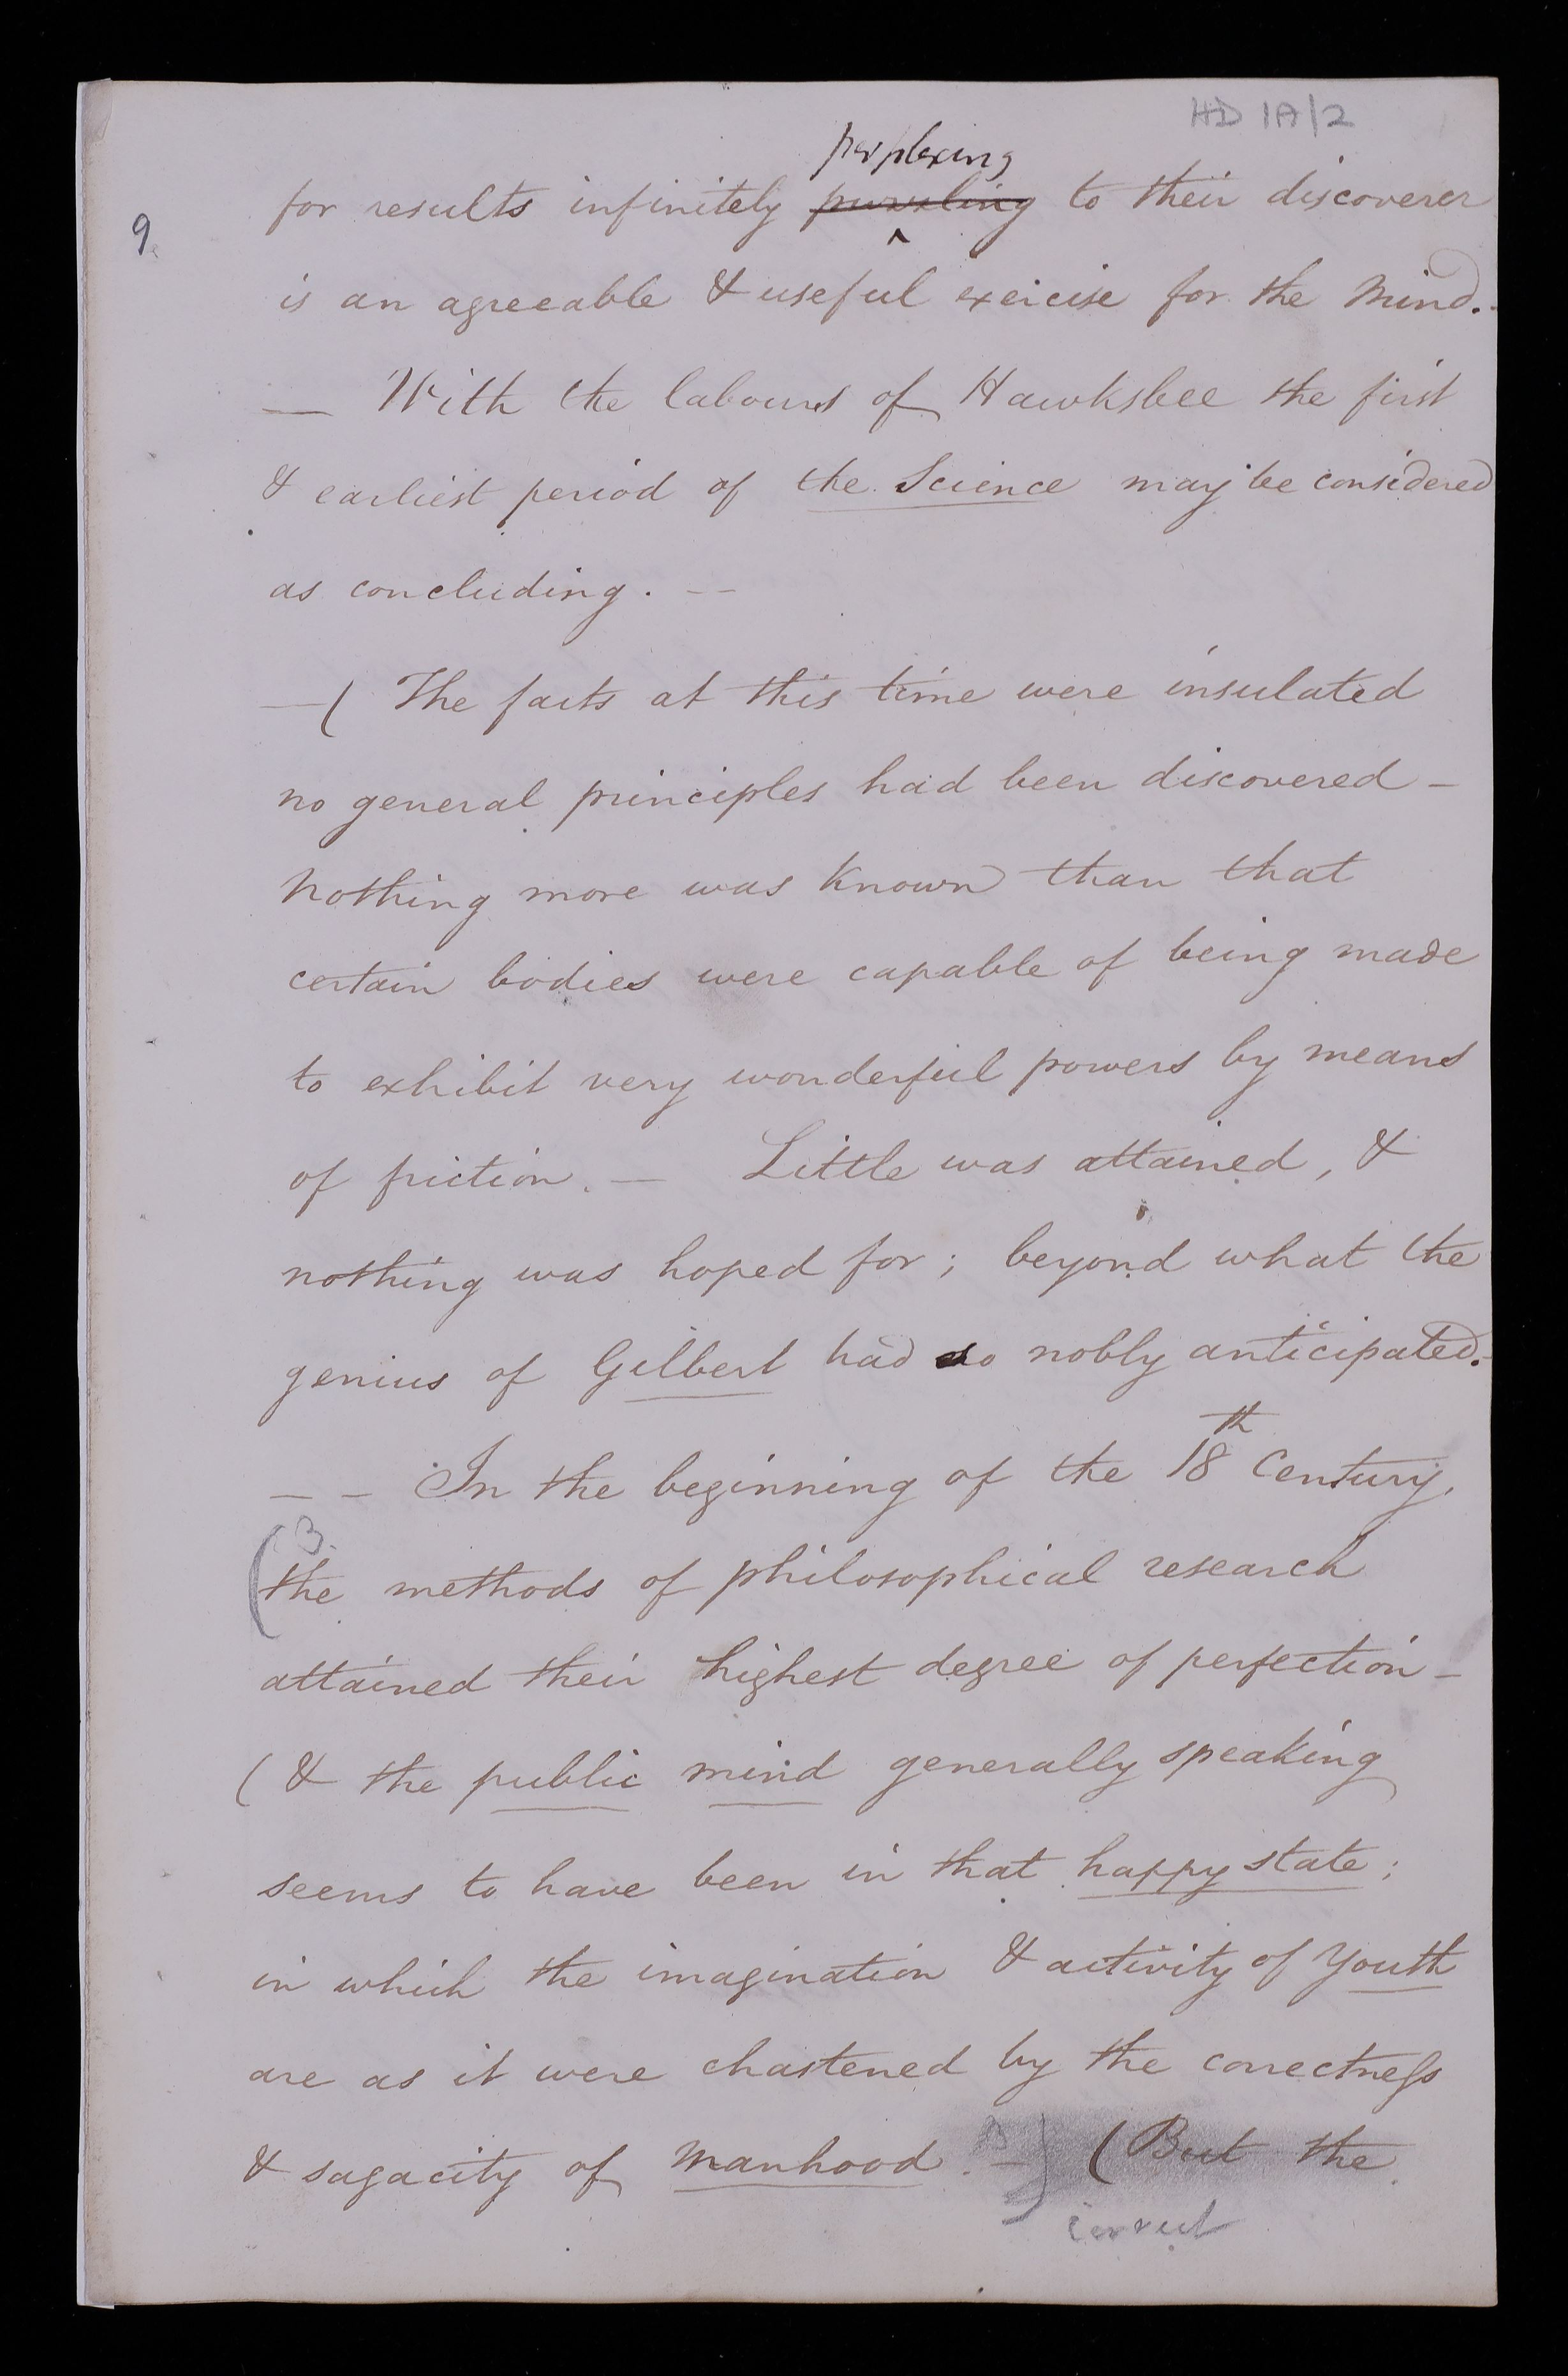 HD 1A/2
perplexing
9.
for results infinitely puzzling to their discoverer
^
is an agreeable & useful exercise for the Mind.-
— With the labours of Hawksbee the first
& earliest period of the Science may be considered
as concluding. --
—( The facts at this time were insulated
no general principles had been discovered -
Nothing more was Known than that
certain bodies were capable of being made
to exhibit very wonderful powers by means
of friction. — Little was attained, &
nothing was hoped for; beyond what the
genius of Gilbert had so nobly anticipated.-
— - In the beginning of the 18th Century,
(B.
the methods of philosophical research
attained their highest degree of perfection -
( & the public mind generally speaking
seems to have been in that happy state;
in which the imagination & activity of Youth
are as it were chastened by the correctness
& sagacity of Manhood. -) (But the
correct